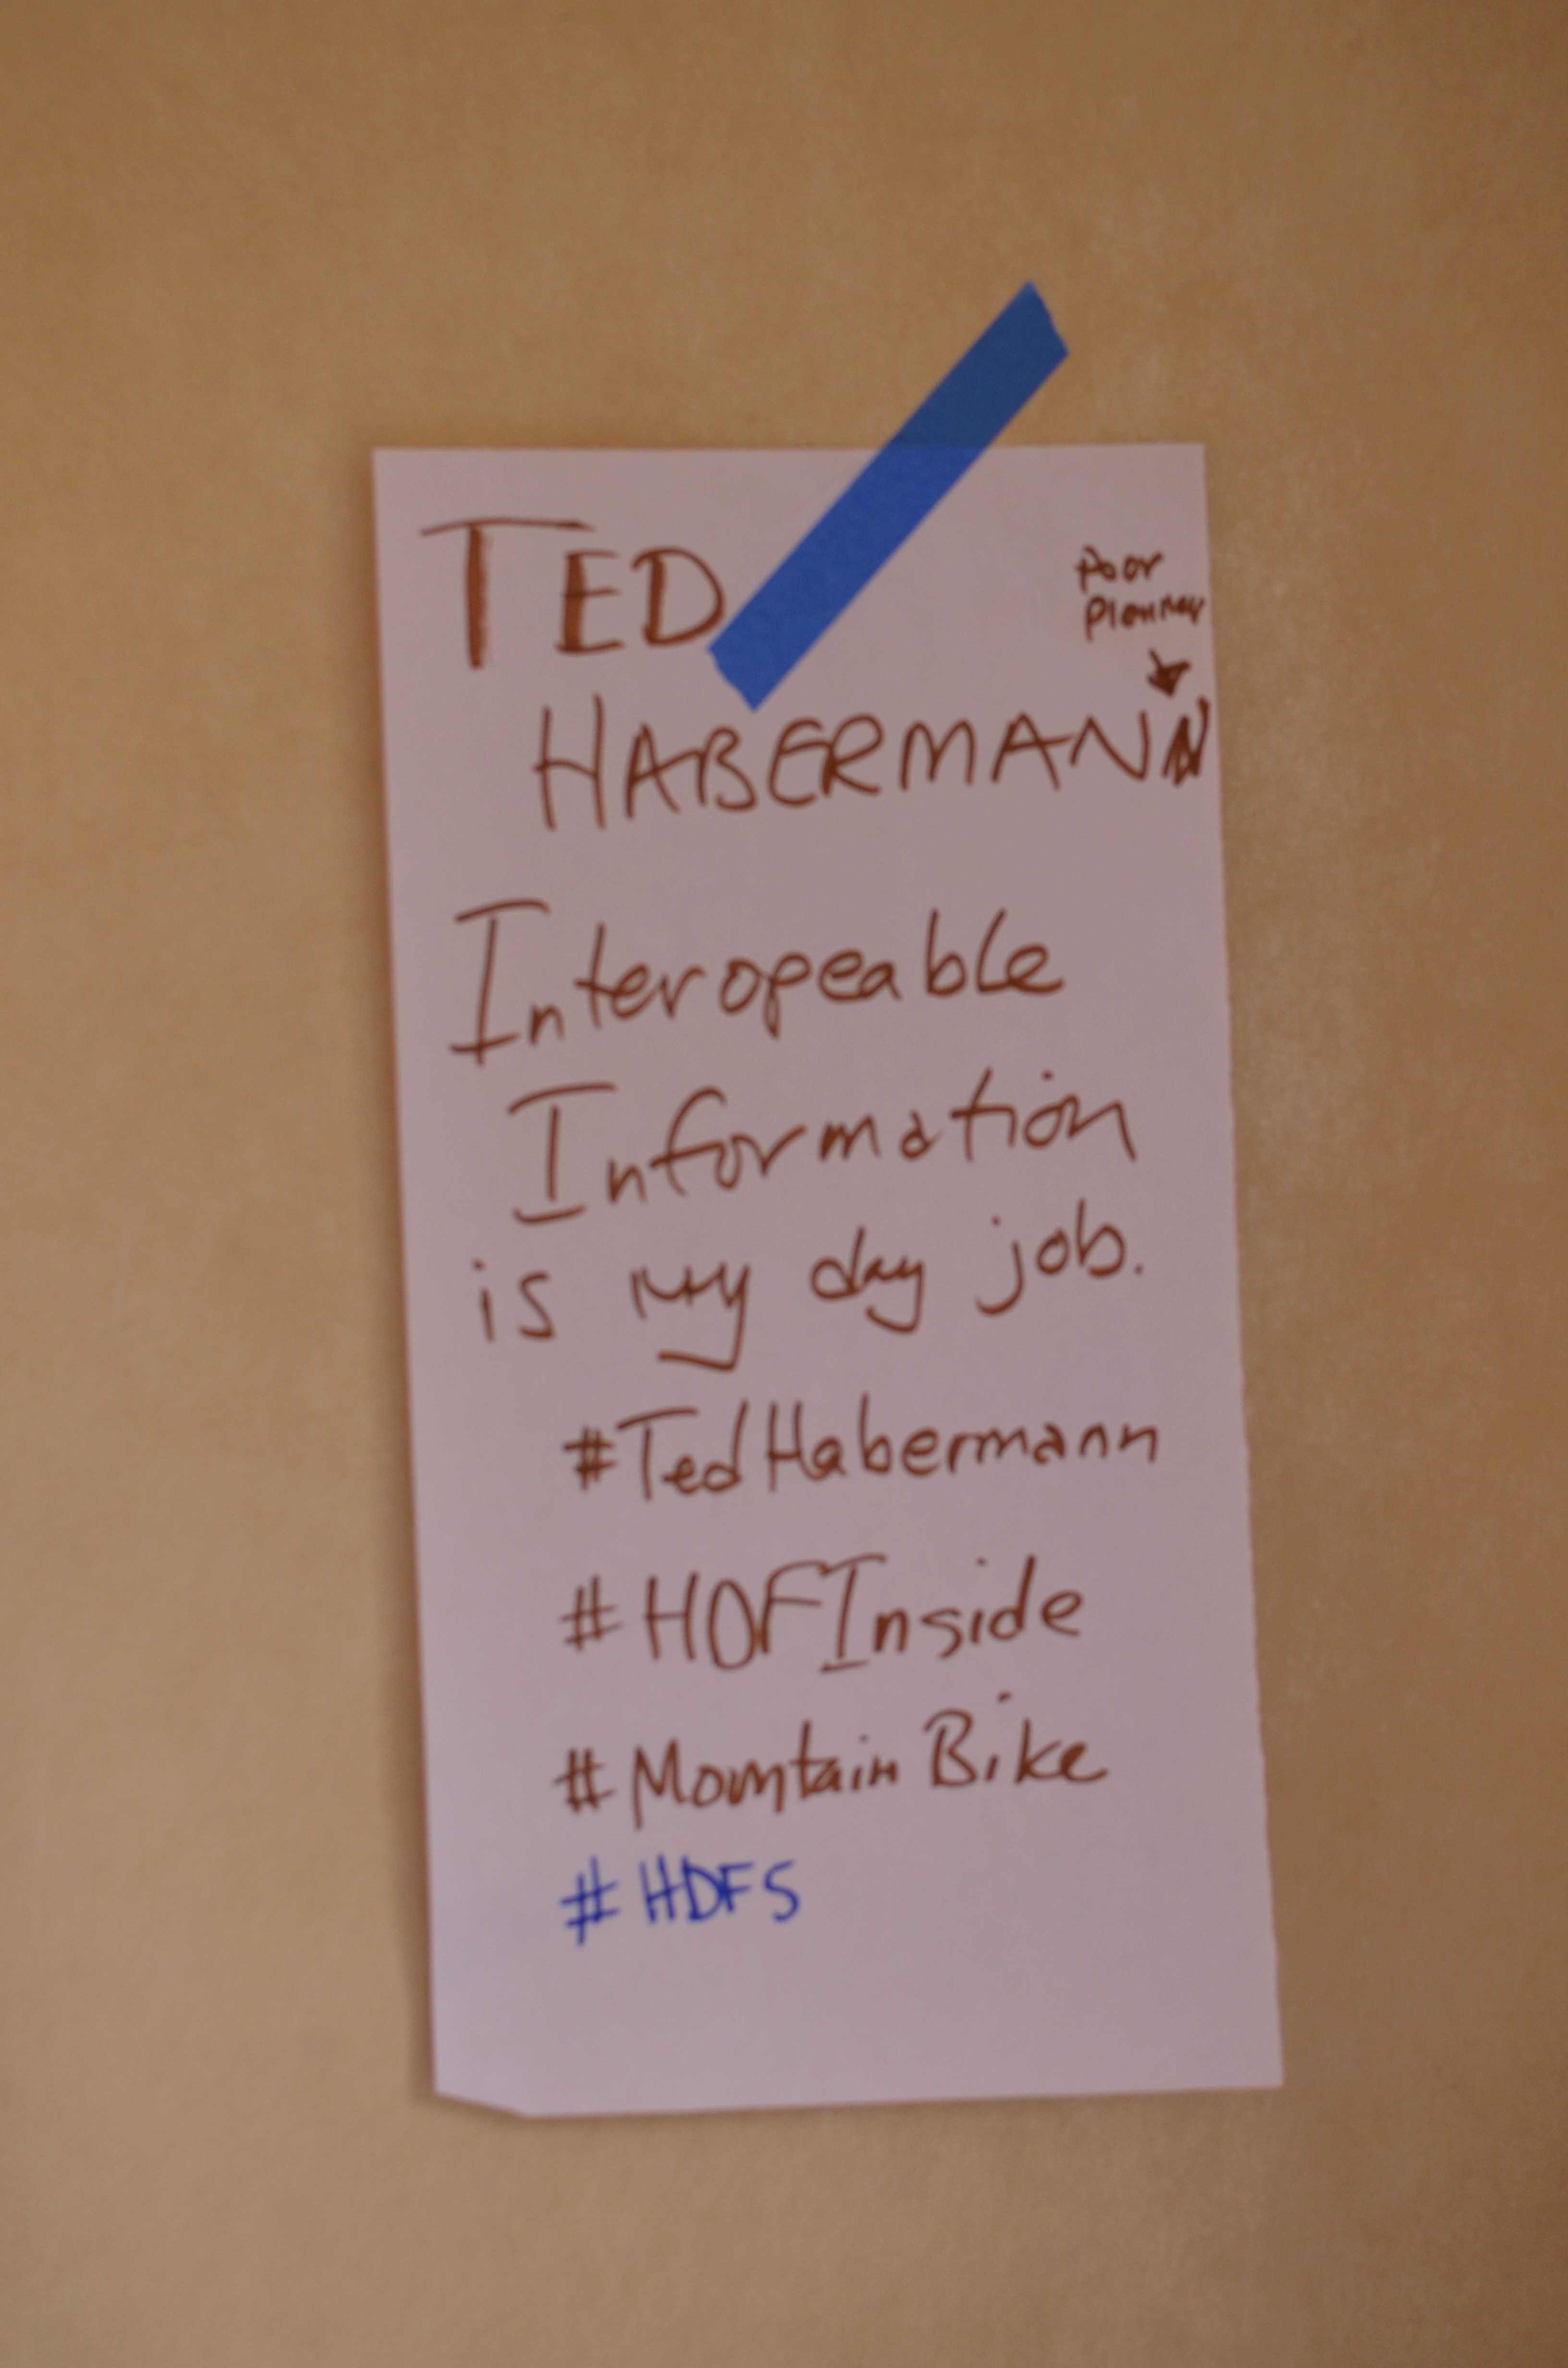 TED
Poor
Planner
HABERMANN
Interopeable
Information
is my day job.
#TedHabermann
#HDFInside
#MountainBike
#HDF5